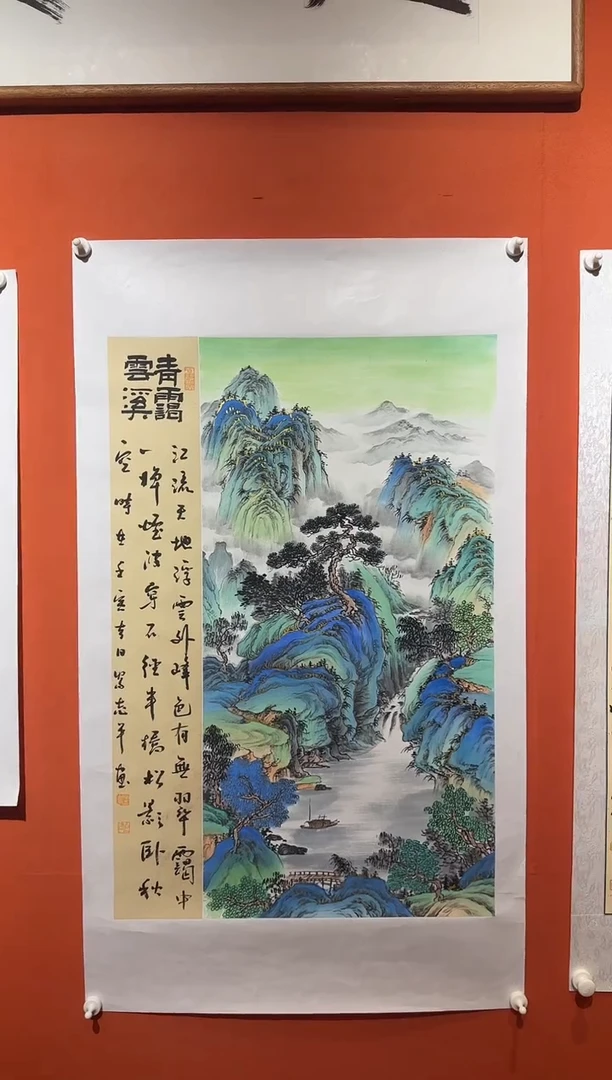 青靄
雲溪
江流天地浮雲外峰色有無翠靄中
一棹煙波穿石徑半橋松影臥秋
空 時在壬寅春日 志平畫